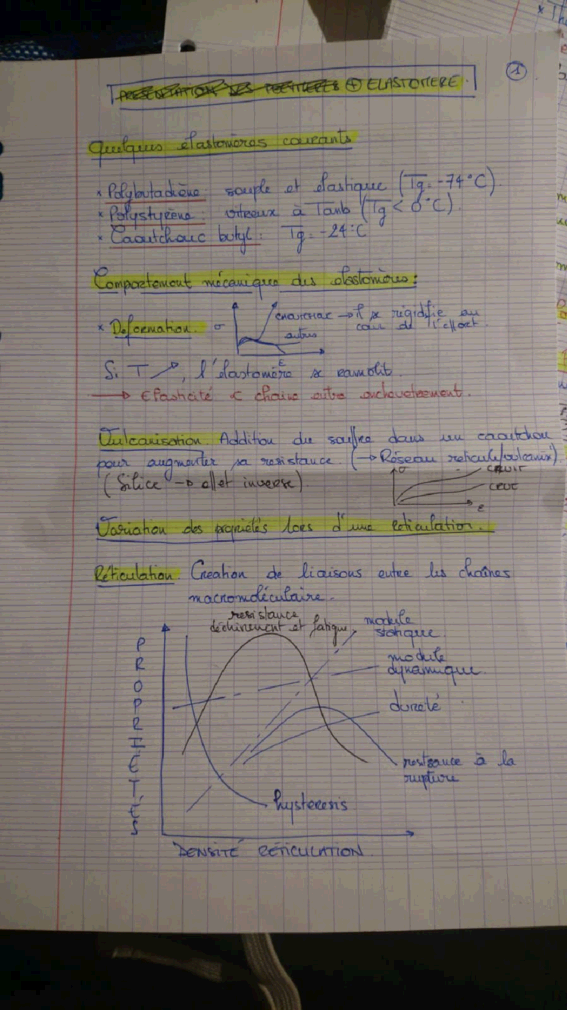 1
PRESENTATION DES MATIERES + ELASTOMERE.
Quelques élastomères courants
* Polybutadiène: souple et élastique (Tg = -74°C).
* Polystyrène: vitreux à Tamb (Tg < 0°C).
* Caoutchouc butyl: Tg = -24°C
Comportement mécanique des élastomères:
* Deformation. σ caoutchouc → il se rigidifie au
cour de l'effort.
autres
ε
Si T ↗, l'élastomère se ramolit.
→ Elasticité < chaine entre enchevetrement.
Vulcanisation. Addition du souffre dans un caoutchou
pour augmenter sa resistance. (→ Réseau reticulé/vulcanisé)
(Silice → effet inverse)
σ CRUIT
CRUE
ε
Variation des propriétés lors d'une réticulation.
Réticulation. Creation de liaisons entre les chaînes
macromoléculaire.
resistance
déchirement et fatigue
module
statique
module
dynamique
dureté
resistance à la
rupture
hysteresis
PROPRIETÉS
DENSITÉ RÉTICULATION